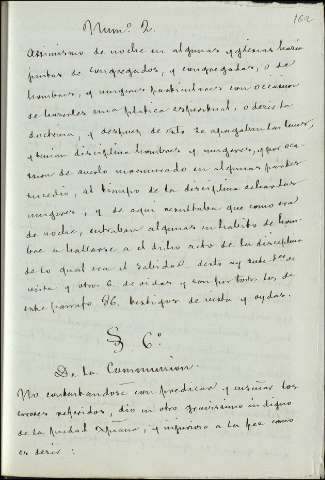 162
Num.º 2.
Assimismo de noche en algunas yglesias havia
juntas de congregados, y congregadas, o de
hombres, y mugeres particulares con occasion
de hacerles una platica espiritual, o decir la
doctrina, y despues de esto se apagaban las luces,
y tenian disciplina hombres y mugeres, y por oca-
sion de aver en algunas partes
sucedio, al tiempo de la disciplina
mugeres, y de aqui resultaba que como era
de noche, entraban algunas en habito de hom-
bre a hallarse a el dicho acto de la disciplina
de lo qual era el Salidad desto ay siete tes.os de
vista y otro 6 de oidas y son por todos los de
este parrafo 86. testigos de vista y oydas.
§ 6º
De la Communion.
No contentandose con predicar y enseñar los
errores referidos, dio en otro gravissimo indigno
de la piedad Xpiana, y injurioso a la fee como
es decir: